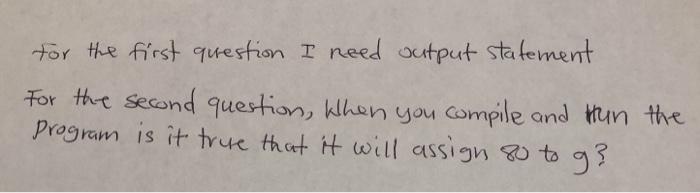 For the first question I need output statement
For the second question, When you compile and run the
Program is it true that it will assign 80 to g?